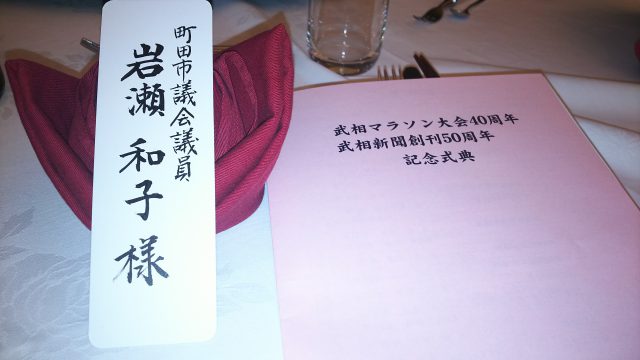 町田市議会議員
岩瀬 和子 様
武相マラソン大会40周年
武相新聞創刊50周年
記念式典